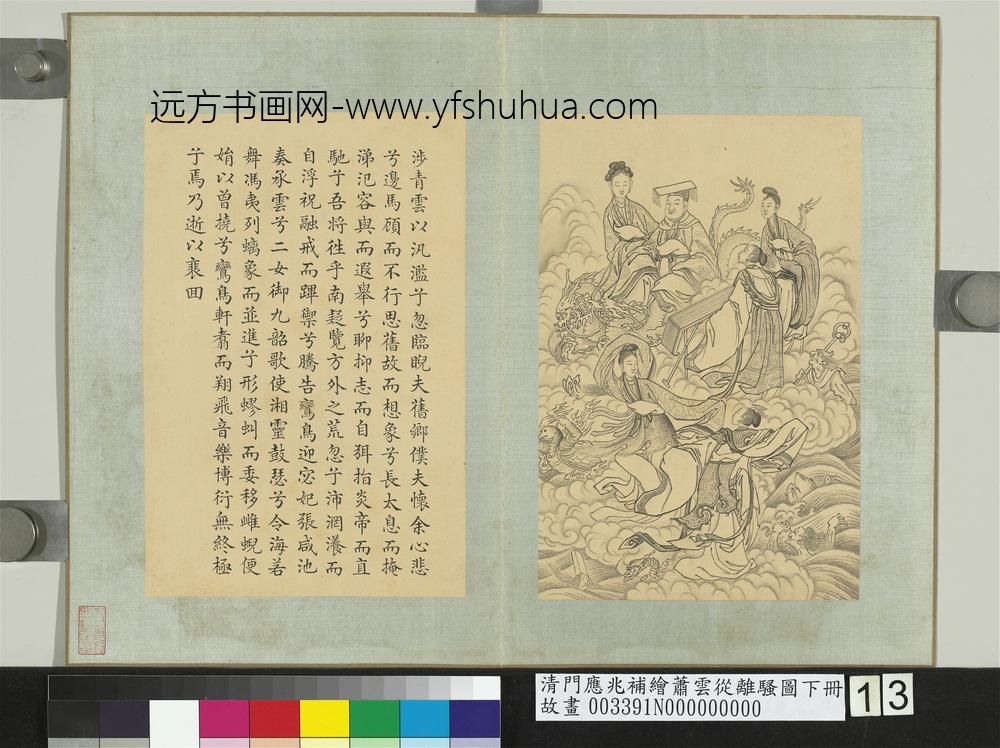 远方书画网-www.yfshuhua.com
涉青雲以汎濫子忽臨睨夫舊鄉僕夫懷余心悲
兮邊馬顧而不行思舊故而想象兮長太息而掩
涕氾容與而遐舉兮聊抑志而自弭指炎帝而直
馳兮吾將徃乎南疑覽方外之荒忽兮沛罔瀁而
自浮祝融戒而蹕禦兮騰告鸞鳥迎宓妃張咸池
奏承雲兮二女御九韶歌使湘靈鼓瑟兮令海若
舞馮夷列螭象而並進兮形蟉虯而委移雌蜺便
娟以曾撓兮鸞鳥軒翥而翔飛音樂博衍無終極
兮焉乃逝以裵回
清門應兆補繪蕭雲從離騷圖下冊
故畫 003391N000000000
13